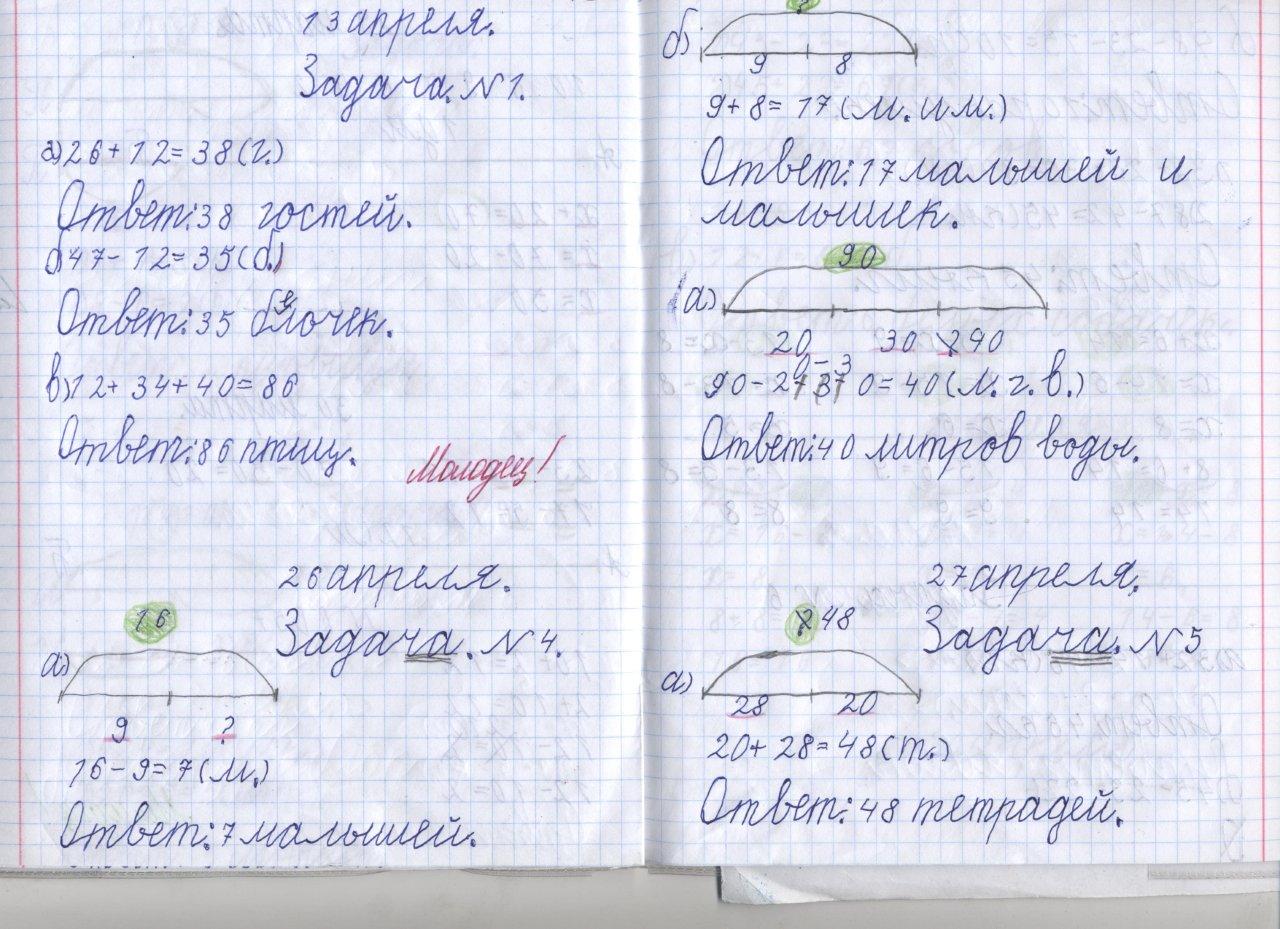 13 апреля.
Задача. №1.
а) 26+12=38(г.)
Ответ: 38 гостей.
б) 47-12=35(б.)
Ответ: 35 белочек.
в) 12+34+40=86
Ответ: 86 птиц.
Молодец!
26 апреля.
Задача. №4.
16
а)
9 ?
16-9=7(м.)
Ответ: 7 малышей.
?
б)
9 8
9+8=17(м. и м.)
Ответ: 17 малышей и
малышек.
90
а)
20 30 ? 40
90-20-30=40(л. г. в.)
Ответ: 40 литров воды.
27 апреля.
Задача. №5
? 48
а)
28 20
20+28=48(т.)
Ответ: 48 тетрадей.